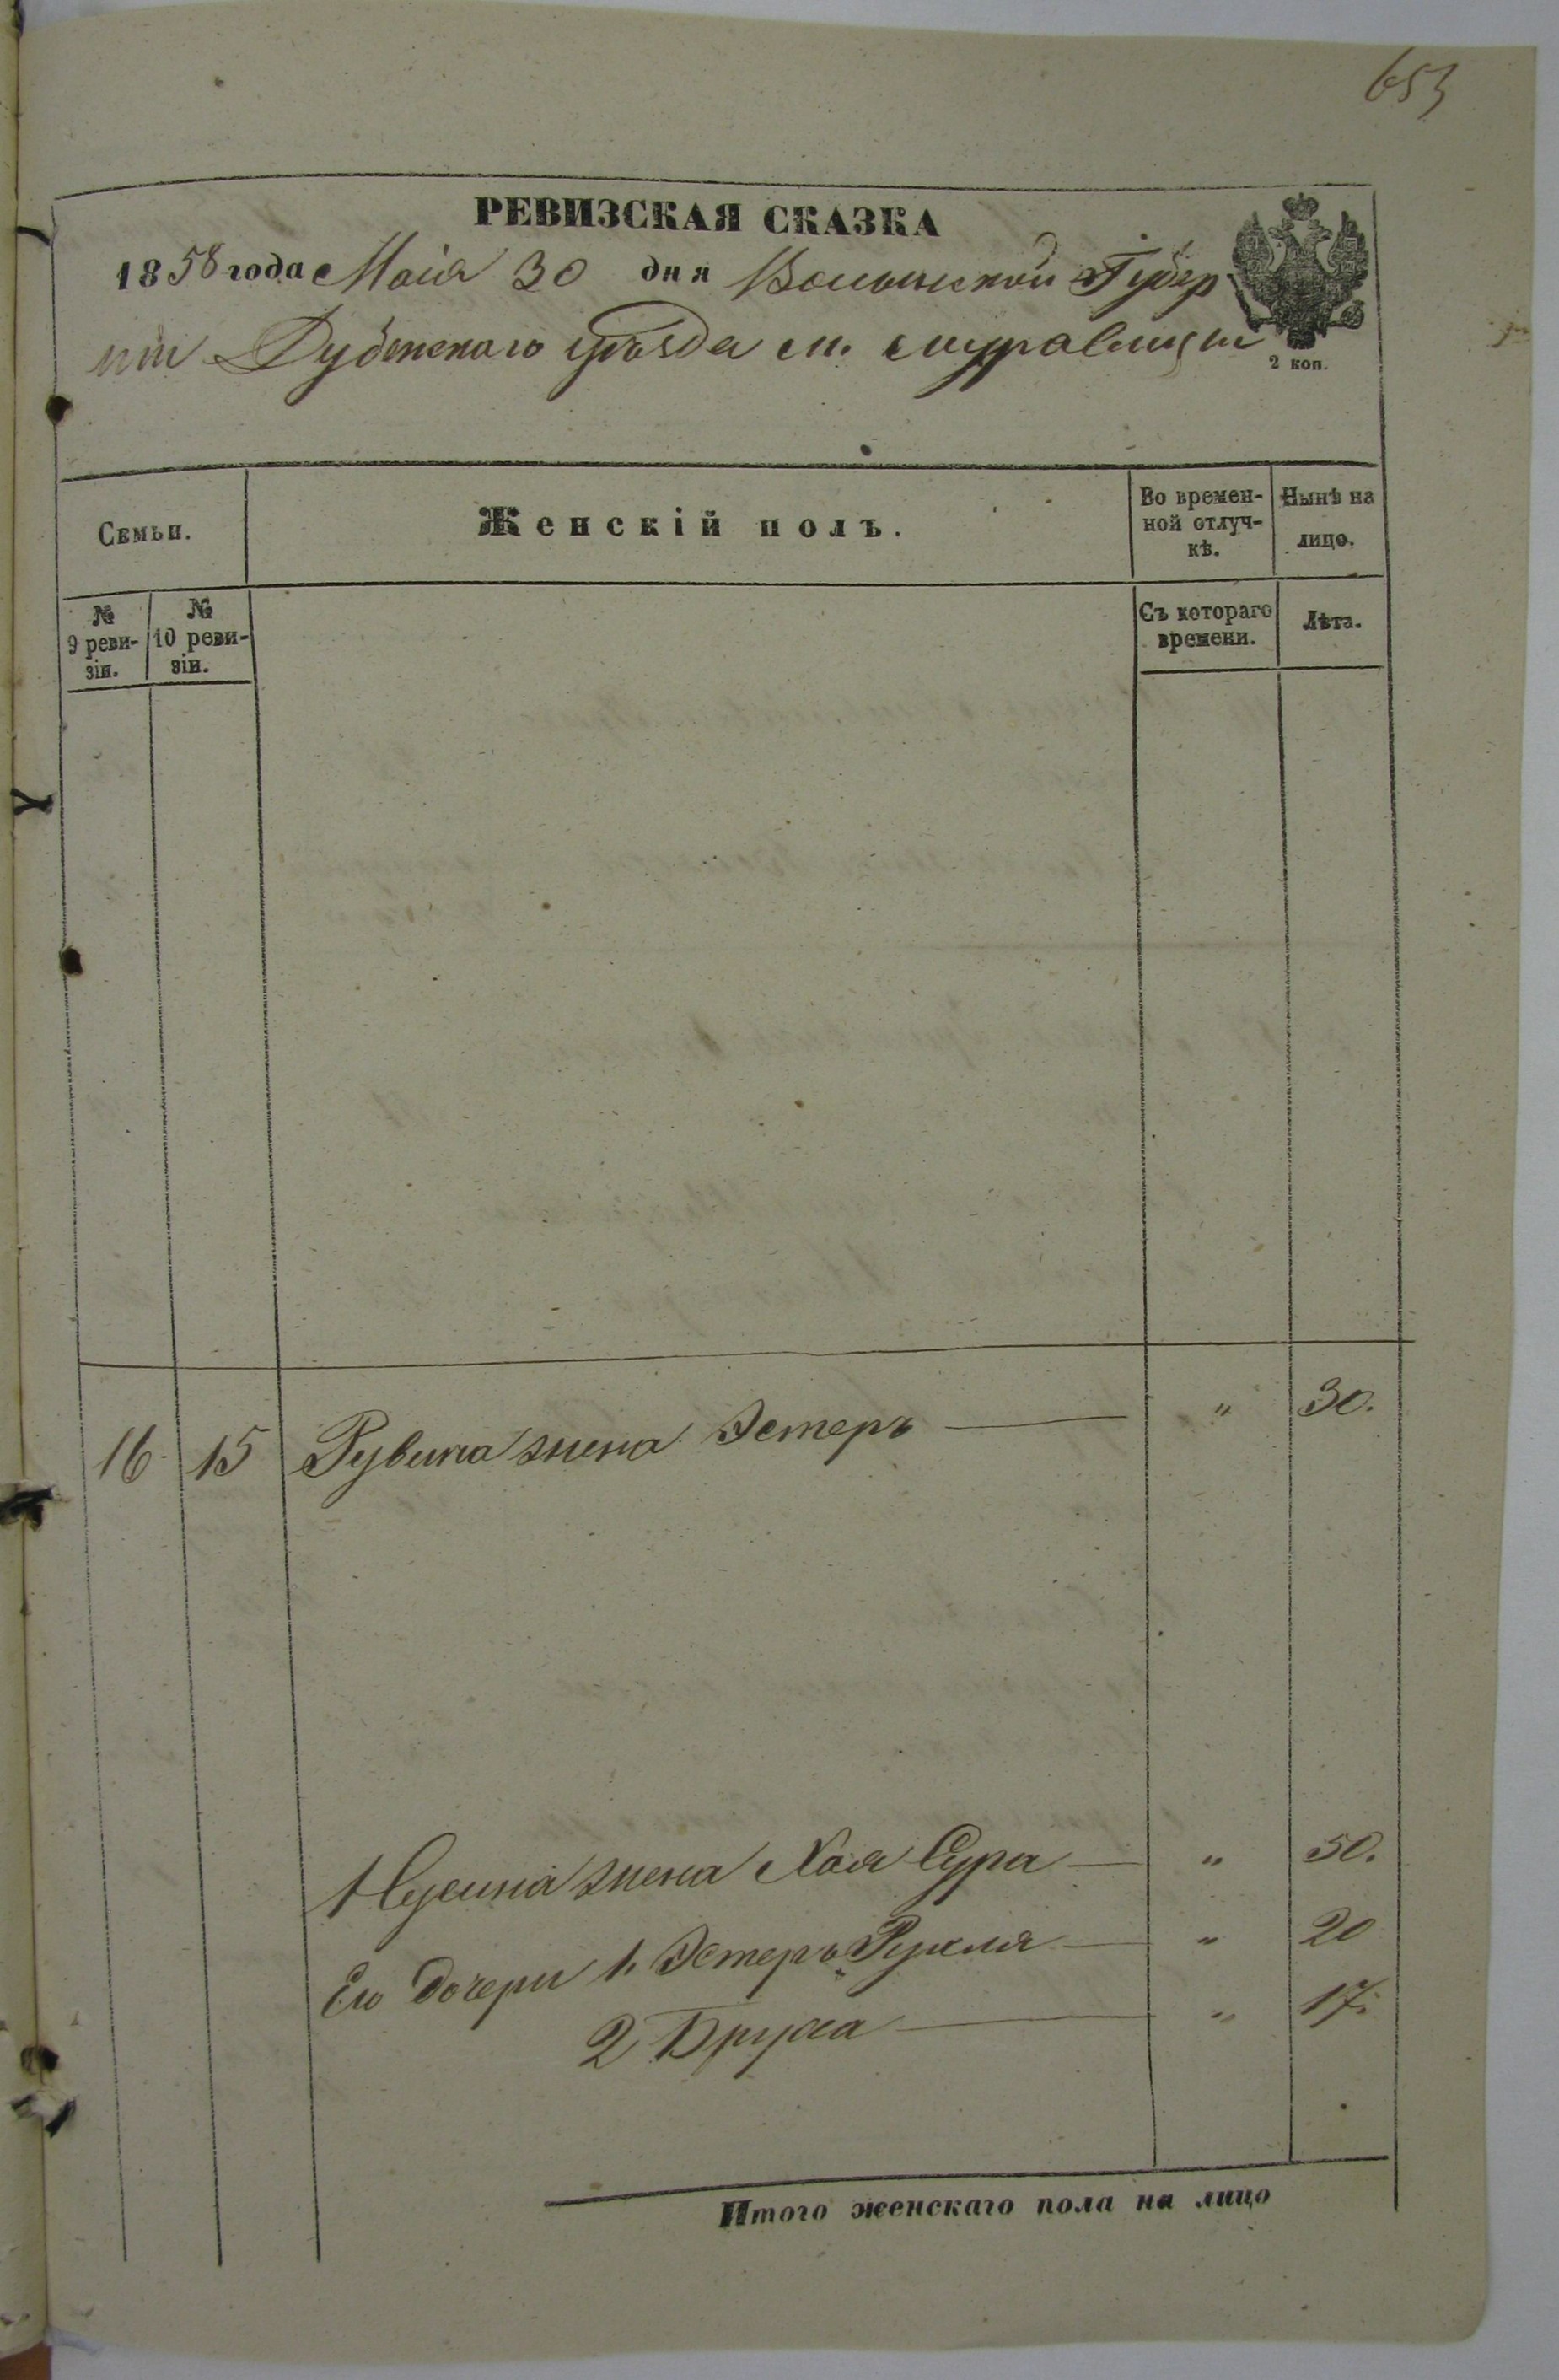 653
РЕВИЗСКАЯ СКАЗКА
1858 года Маія 30 дня Волынской Губер
ніи Дубенскаго уѣзда м. Муравицы
2 коп.
Семьи.
Женскій полъ.
Во времен-
ной отлуч-
кѣ.
Нынѣ на
лицо.
№
9 реви-
зіи.
№
10 реви-
зіи.
Съ котораго
времени.
Лѣта.
16 15 Рувина жена Эстеръ — " 30.
Нусина жена Хая Сура — " 50.
Его дочери 1. Эстеръ Рухля — " 20
2 Бруха — " 17.
Итого женскаго пола на лицо